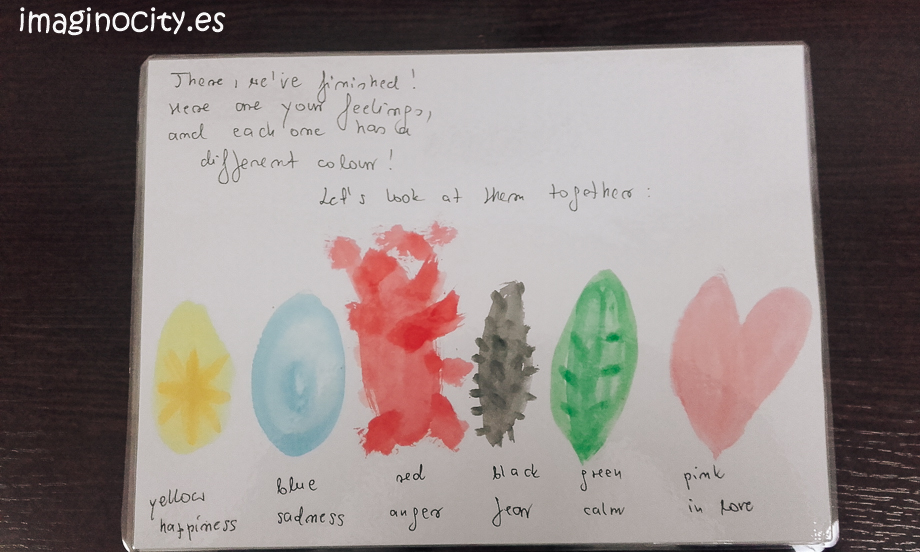 imaginocity.es
There, we've finished!
Here are your feelings,
and each one has a
different colour!
Let's look at them together:
yellow
happiness
blue
sadness
red
anger
black
fear
green
calm
pink
in love